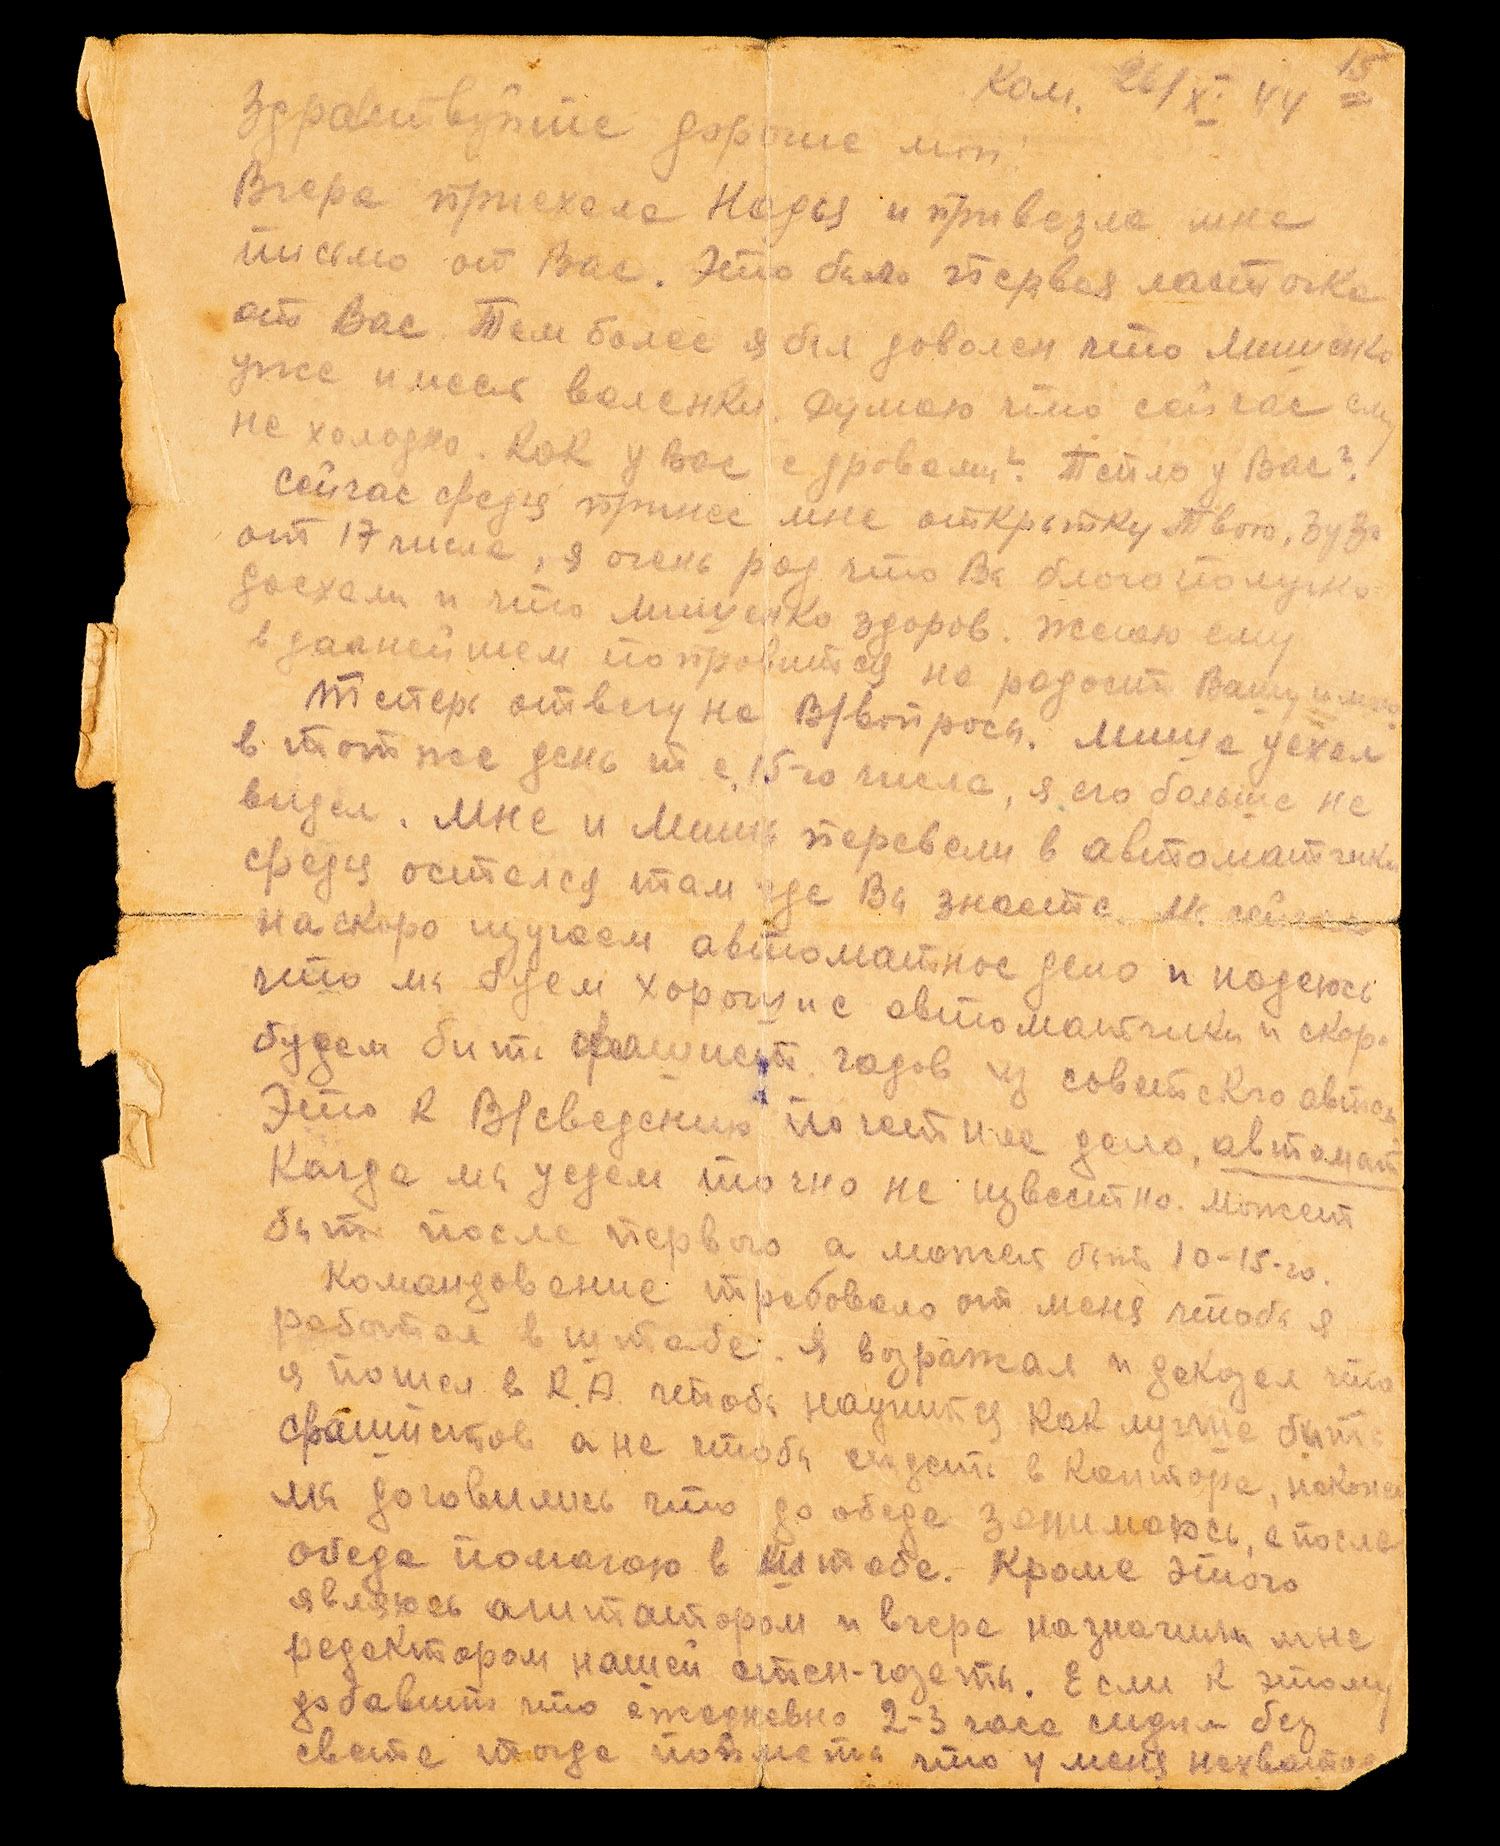 15
Кам. 26/XI 44
Здравствуйте дорогие мои!
Вчера приехала Надя и привезла мне
письмо от Вас. Это была первая ласточка
от Вас. Тем более я был доволен что Мишенка
уже имеет валенки. Думаю что сейчас ему
не холодно. Как у Вас с дровами? Тепло у Вас?
Сейчас Федя принес мне открытку Твою, Зузо
от 17 числа, я очень рад что Вы благополучно
доехали и что Мишенка здоров. Желаю ему
в далнейшем поправится на радость Вашу и мою.
Теперь отвечу на В/вопросы. Миша уехал
в тот же день т.е. 15-го числа, я его больше не
видел. Мне и Мишь перевели в автоматчики
Федя остался там где Вы знаете. Мы сейчас
наскоро изучаем автоматное дело и надеюсь
что мы будем хорошие автоматчики и скоро
будем бить фашист. гадов из советского автом.
Это к В/сведению почетное дело, автомат
Когда мы уедем точно не известно. Может
быть после первого а может быть 10-15-го.
Командование требовало от меня чтобы я
работал в штабе. Я возражал и доказал что
я пошел в К.А. чтобы научится как лучше быть
фашистов а не чтобы сидеть в канторе, наконец
мы договились что до обеда занимаюсь, а после
обеда помагаю в штабе. Кроме этого
являюсь агитатором и вчера назначили мне
редактором нашей стен-газеты. Если к этому
добавить что ежедневно 2-3 часа сидим без
света тогда поймете что у меня нехватает